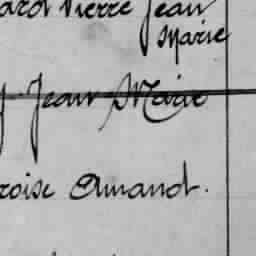 Pierre Jean
Marie
Jean Marie
roise Amanot.